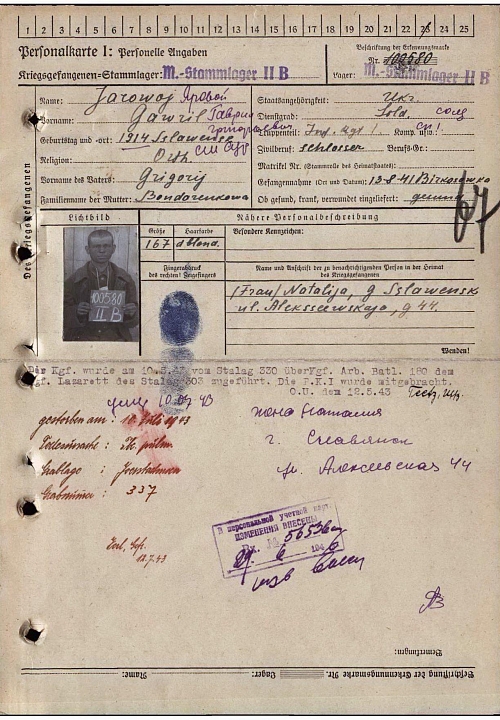 1 2 3 4 5 6 7 8 9 10 11 12 13 14 15 16 17 18 19 20 21 22 23 24 25
Personalkarte I: Personelle Angaben
Kriegsgefangenen-Stammlager: M.-Stammlager II B
Beschriftung der Erkennungsmarke
Nr. 100580
Lager: M.-Stammlager II B
Des Kriegsgefangenen
Name: Jarowoj Яровой
Vorname: Gawriil Гавриил Григорьевич
Geburtstag und -ort: 1914 Sslawensk
Religion: Orth.
Vorname des Vaters: Grigorij
Familienname der Mutter: Bondarenkowa
Staatsangehörigkeit: Ukr.
Dienstgrad: Sold. солд
Truppenteil: Inf. Rgt. Komp. usw.:
Zivilberuf: schlosser Berufs-Gr.:
Matrikel Nr. (Stammrolle des Heimatstaates):
Gefangennahme (Ort und Datum): 13-8-41
Ob gesund, krank, verwundet eingeliefert: gesund
Lichtbild
100580
II B
Nähere Personalbeschreibung
Größe Haarfarbe Besondere Kennzeichen:
167 d blond.
Fingerabdruck
des rechten! Zeigefingers
Name und Anschrift der zu benachrichtigenden Person in der Heimat
des Kriegsgefangenen
(Frau) Natalija, g Sslawensk
ul. Aleksseewskaja, g 44.
Wenden!
Der Kgf. wurde am 10.5.43 vom Stalag 330 über Kgf. Arb. Batl. 180 dem
Kgf. Lazarett des Stalag 303 zugeführt. Die P.K.I wurde mitgebracht.
O.U. dem 12.5.43
10.07.43
gestorben am: 10. Juli 1943
Todesursache:
Grablage:
Grabnummer: 337
12.7.43
жена Наталия
г. Славянск
ул. Алексеевская 44
В персональной учетной карт.
ИЗМЕНЕНИЯ ВНЕСЕНЫ
Вх. №
194
Bemerkungen:
Beschriftung der Erkennungsmarke Nr. Lager: Name: